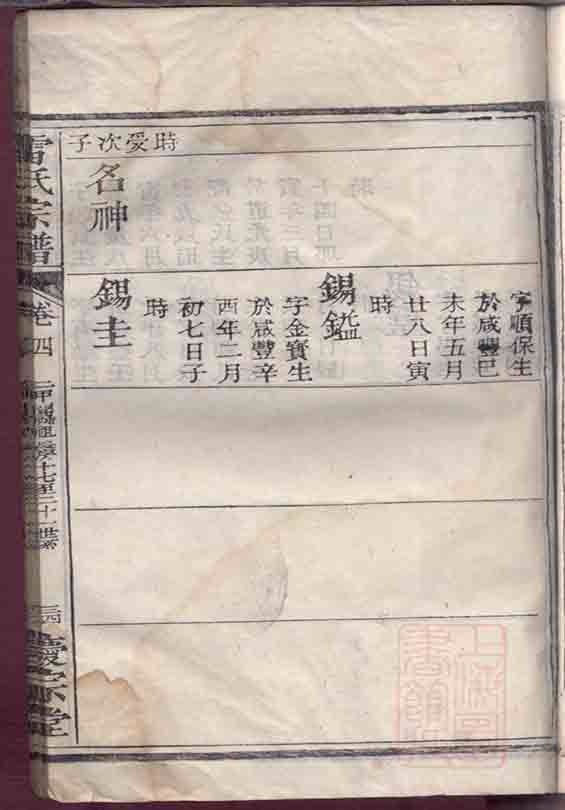 時受次子
名神
錫鎰
字順保生
於咸豐巳
未年五月
廿八日寅
時
錫圭
字金寶生
於咸豐辛
酉年二月
初七日子
時
雷氏宗譜
卷四
慶宗堂